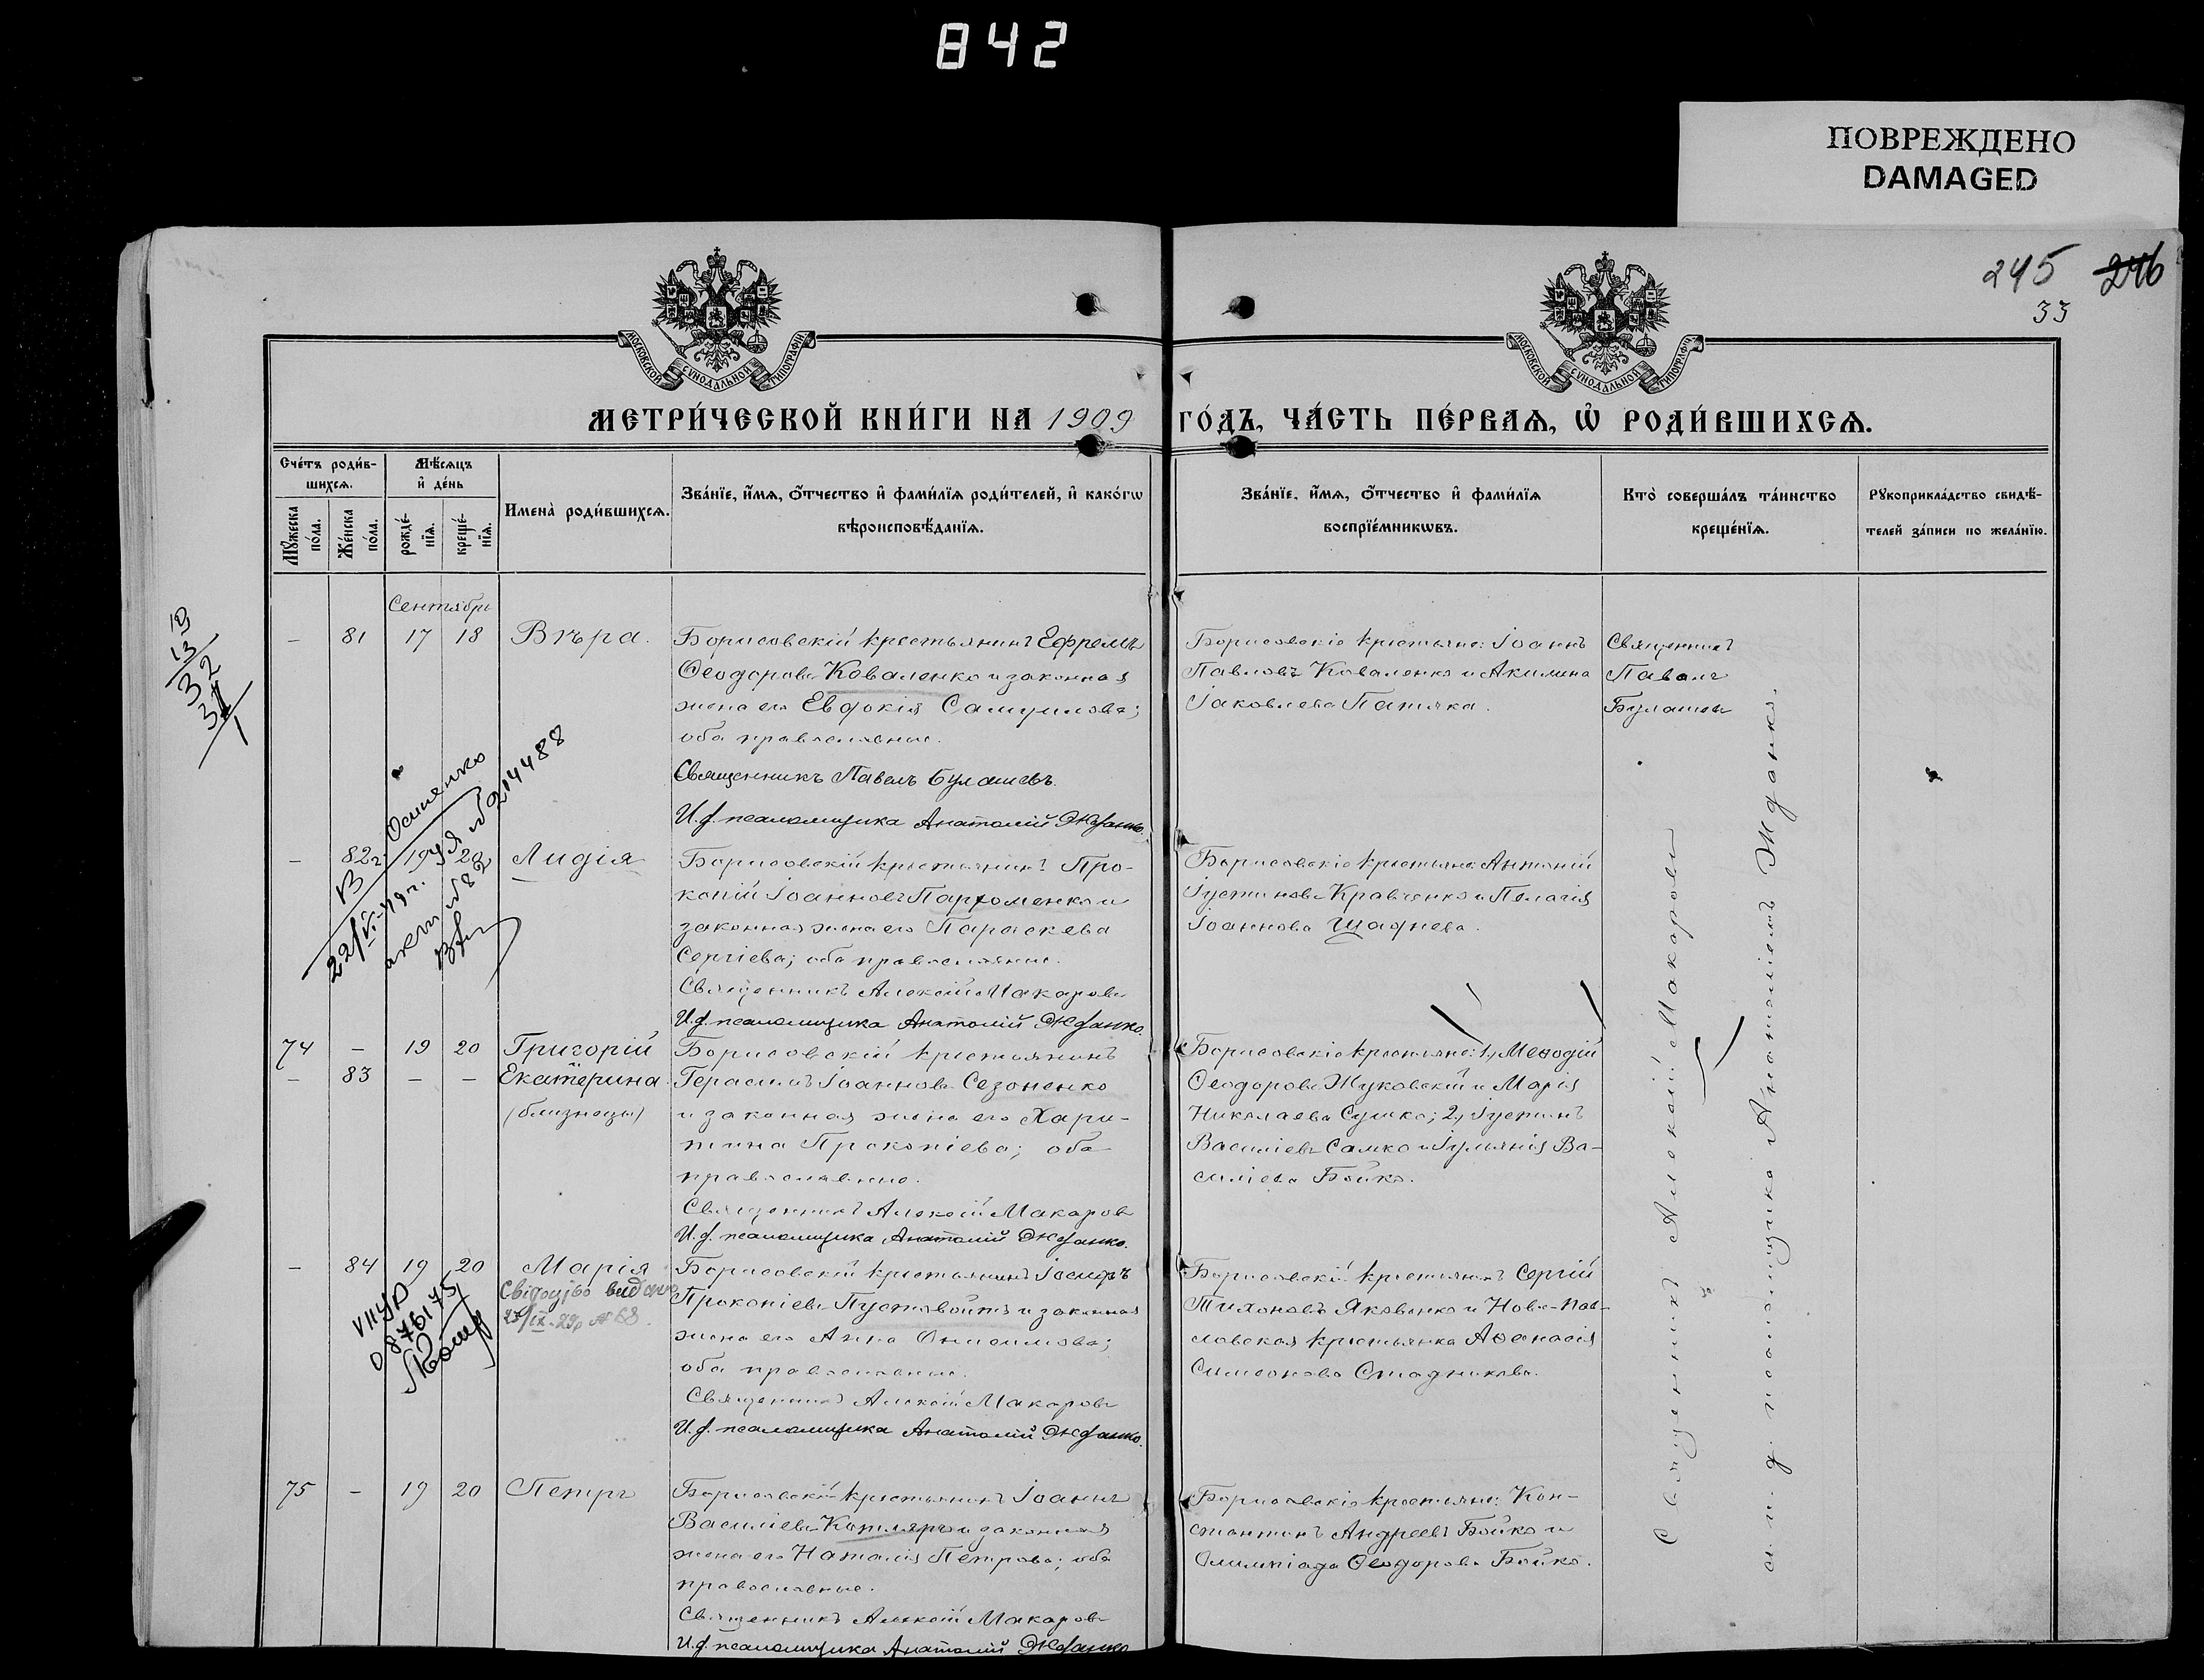 842
ПОВРЕЖДЕНО
DAMAGED
245 246
33
МОСКОВСКОЙ СѴНОДАЛЬНОЙ ТИПОГРАФІИ
МОСКОВСКОЙ СѴНОДАЛЬНОЙ ТИПОГРАФІИ
МЕТРИ́ЧЕСКОЙ КНИ́ГИ НА 1909 ГО́ДЪ, ЧА́СТЬ ПЕ́РВАѦ, Ѡ҆ РОДИ́ВШИХСѦ.
Сче́тъ роди́в-
шихсѧ.
Мꙋ́жеска по́ла.
Же́нска по́ла.
Мѣ́сѧцъ
и҆ де́нь
рожде́-
нїѧ.
креще́-
нїѧ.
И҆мена̀ роди́вшихсѧ.
Зва́нїе, и҆́мѧ, ѻ҆́тчество и҆ фами́лїѧ роди́телей, и҆ како́гѡ
вѣроисповѣ́данїѧ.
Зва́нїе, и҆́мѧ, ѻ҆́тчество и҆ фами́лїѧ
воспрїе́мникѡвъ.
Кто̀ соверша́лъ та́инство
креще́нїѧ.
Рꙋкоприкла́дство свидѣ́-
телей за́писи по жела́нїю.
Сентябрь
— 81 17 18 Вѣра.
Борисовскій крестьянинъ Ефремъ
Ѳеодоровъ Коваленко и законная
жена его Евдокія Самуилова;
оба православные.
Священникъ Павелъ Булашевъ.
И. д. псаломщика Анатолій Жданко.
Борисовскіе крестьяне: Іоаннъ
Павловъ Коваленко и Акилина
Іаковлева Патяка.
Священникъ
Павелъ
Булашевъ
19
13
32
1
— 82 19 20 Лидія
22/VI-49 г.
акт № 82
№ 214488
Борисовскій крестьянинъ Про-
копій Іоанновъ Пархоменко и
законная жена его Параскева
Сергіева; оба православные.
Священникъ Алексій Макаровъ
И. д. псаломщика Анатолій Жданко.
Борисовскіе крестьяне: Антоній
Іустиновъ Кравченко и Пелагія
Іоаннова Шаднева.
74 — 19 20 Григорій
— 83 — — Екатерина
(близнецы)
Борисовскій крестьянинъ
Герасимъ Іоанновъ Сезоненко
и законная жена его Хари-
тина Прокопіева; оба
православные.
Священникъ Алексій Макаровъ
И. д. псаломщика Анатолій Жданко.
Борисовскіе крестьяне: 1, Меѳодій
Ѳеодоровъ Жуковскій и Марія
Николаева Сушко; 2, Іустинъ
Василіевъ Самко и Іульянія Ва-
силіева Бойко.
— 84 19 20 Марія
0876175
Борисовскій крестьянинъ Іосифъ
Прокопіевъ Пустовойтъ и законная
жена его Анна Онисимова;
оба православные.
Священникъ Алексій Макаровъ
И. д. псаломщика Анатолій Жданко.
Борисовскій крестьянинъ Сергій
Тихоновъ Яковенко и Ново-Пав-
ловская крестьянка Аѳанасія
Симеонова Стадникова.
75 — 19 20 Петръ
Борисовскій крестьянинъ Іоаннъ
Василіевъ Котляръ и законная
жена его Наталія Петрова; оба
православные.
Священникъ Алексій Макаровъ
И. д. псаломщика Анатолій Жданко
Борисовскіе крестьяне: Кон-
стантинъ Андреевъ Бойко и
Олимпіада Ѳеодорова Бойко.
Священникъ Алексій Макаровъ
и. д. псаломщика Анатолій Жданко.